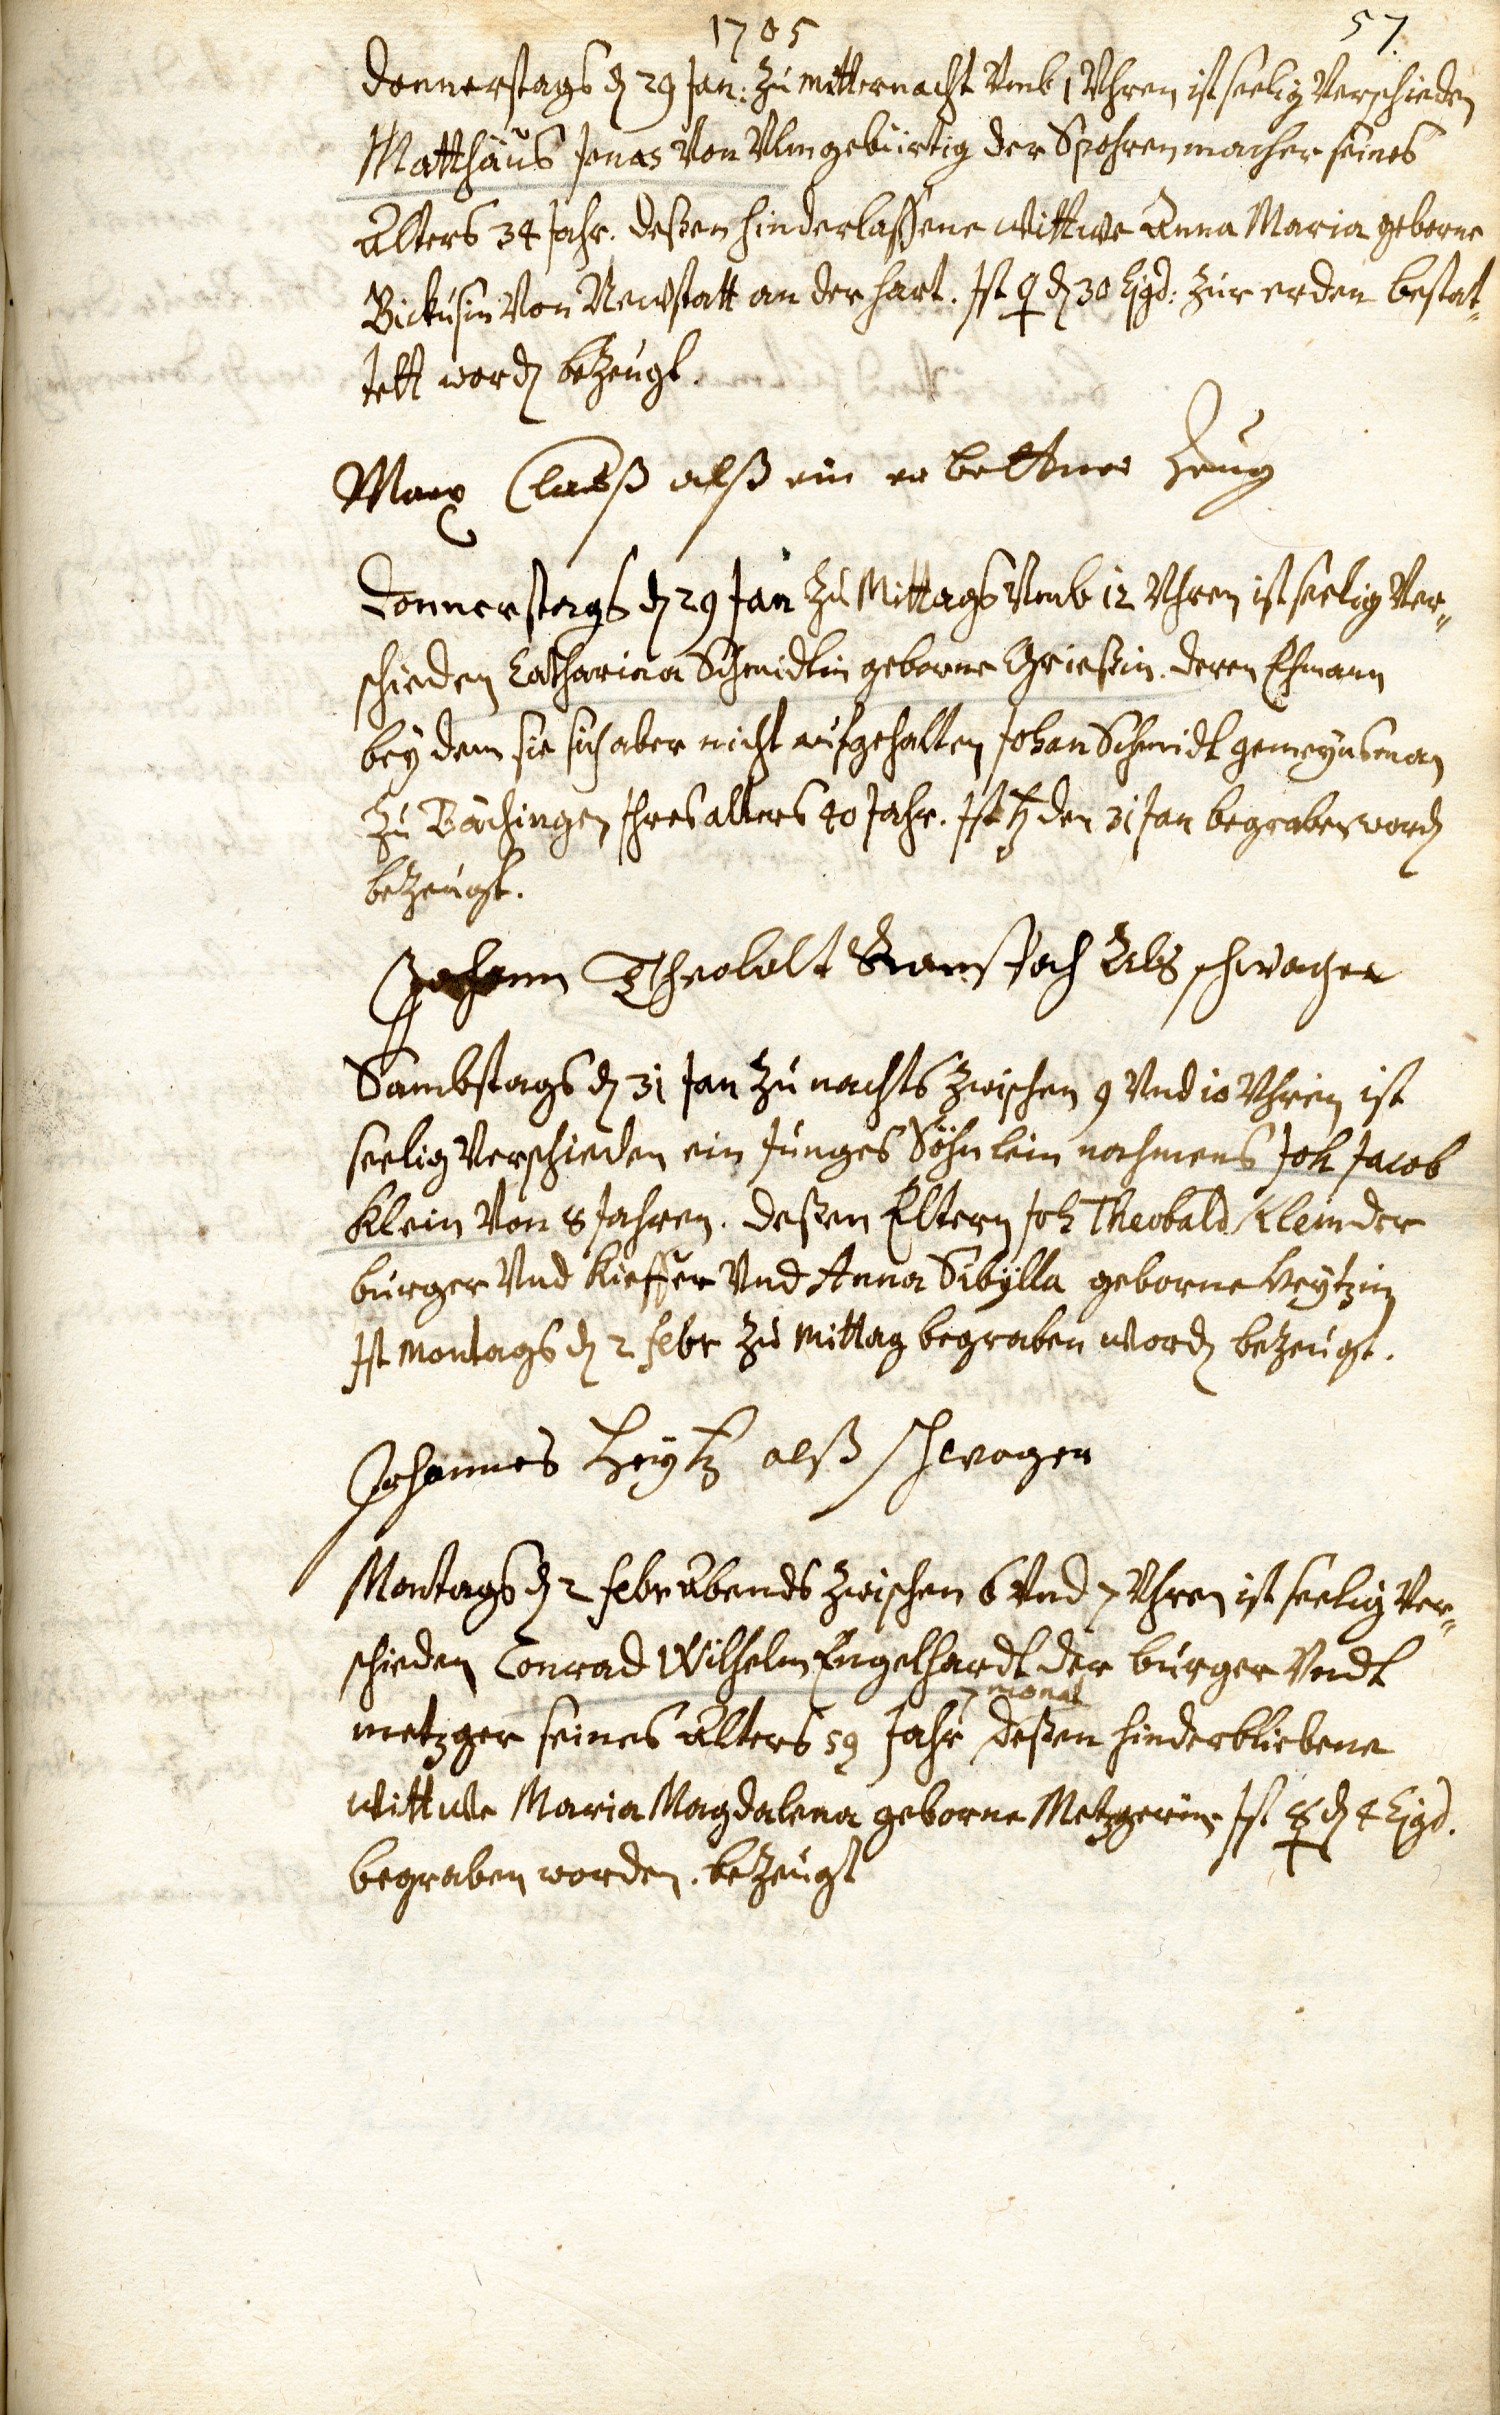 1705
57.
Donnerstags d 29 Jan: zu mitternacht Vmb 1 Vhren ist seelig Verschieden
Matthäus Jonas Von Vlm gebürtig der Spohrenmacher seines
Alters 34 Jahr. deßen hinderlassene wittwe Anna Maria geborne
Von Newstatt an der hart. Ist ♀ d 30 Ejsd: zur erden bestat„
tett word bezeugt.
Marx Clauß alß ein er bettner Zeug
Donnerstags d 29 Jan zu Mittags Vmb 12 Vhren ist seelig Ver„
schieden Catharina Schmidtin geborne Grießin. deren Ehmann
bey dem sie sich aber nicht aufgehalten Johan Schmidt gemeynsman
zu Bächingen Ihres alters 40 Jahr. Ist ♄ den 31 Jan begraben word
bezeugt.
Johann Als schwager
Sambstags d 31 Jan zu nachts zwischen 9 Vnd 10 Vhren ist
seelig Verschieden ein Junges Söhnlein nahmens Joh Jacob
Klein Von 8 Jahren. deßen Eltern Joh Theobald Klein der
burger Vnd Kieffer Vnd Anna Sibÿlla geborne
Ist Montags d 2 febr zu mittag begraben word bezeugt.
Johannes alß schwager
Montags d 2 febr Abends zwischen 6 Vnd 7 Vhren ist seelig Ver„
schieden Conrad Wilhelm Engelhardt der burger Vndt
7 monat
metzger seines Alters 59 Jahr deßen hinderbliebene
wittwe Maria Magdalena geborne Metzgerin. Ist ☿ d 4 Ejsd.
begraben worden. bezeugt